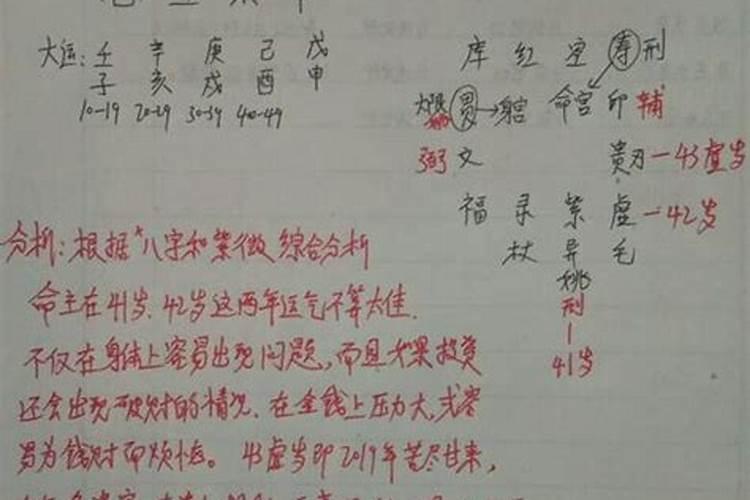 大运: 壬 辛 庚 己 戊
子 亥 戌 酉 申
10-19 20-29 30-39 40-49
库 红 空 寿 刑
大限 贯→身宫 命宫 印 辅
弼 文 贵刃—43虚岁
福 录 紫 虚—42岁
杖 异 毛
姚
刑
41岁
分析:根据八字和紫微综合分析
命主在41岁、42岁这两年运气不算太佳.
不仅在身体上容易出现问题,而且如果投资
还会出现破财的情况、在金钱上压力大,或容
易为钱财而烦恼。43虚岁即2019年苦尽甘来,